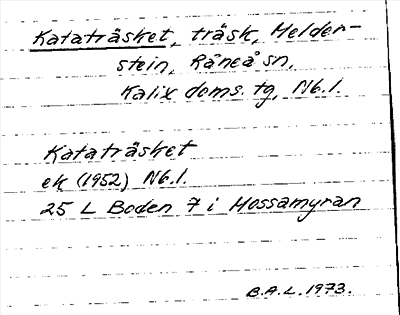 Kataträsket, träsk, Melder-
stein, Råneå sn,
Kalix doms. tg, Nb.l.
Kataträsket
ek (1952) Nb.l.
25 L Boden 7 i Mossamyran
B.A.L. 1973.